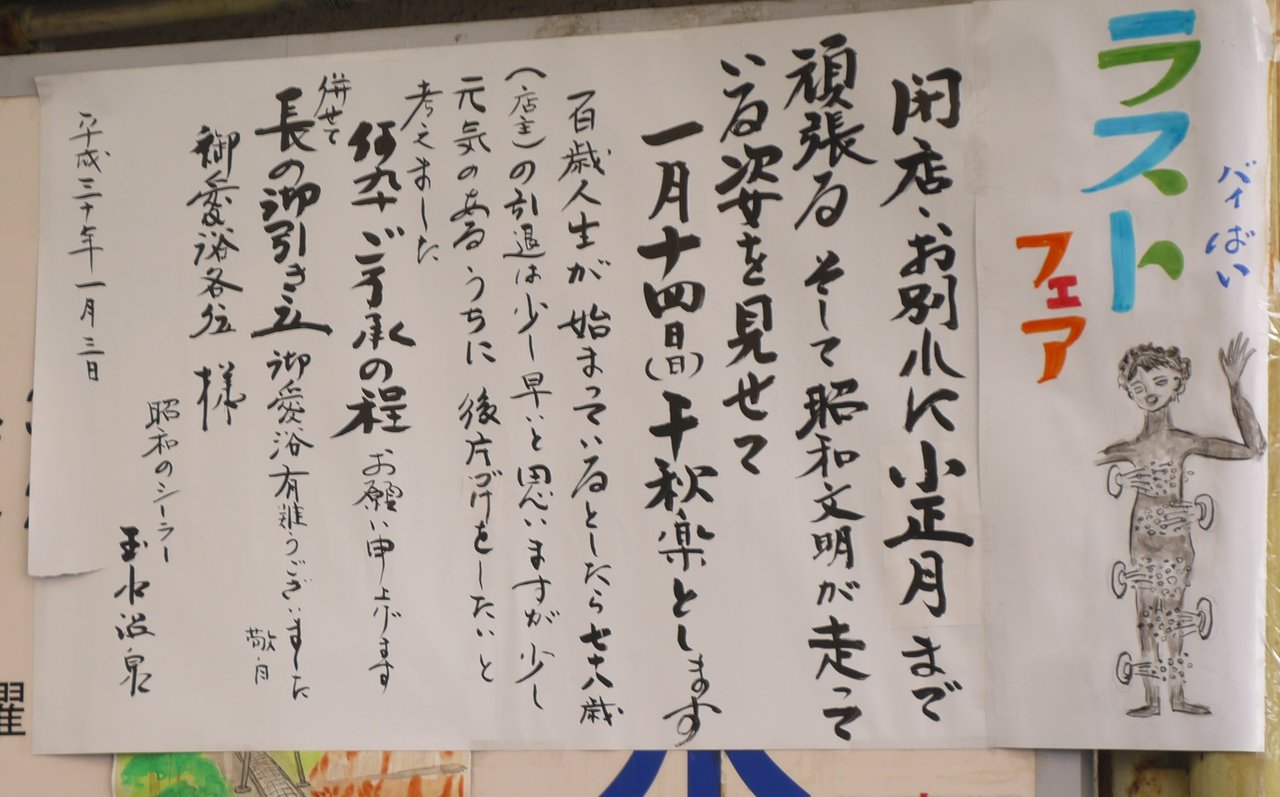 バイばい
ラスト
フェア
閉店、お別れに小正月まで
頑張る そして昭和文明が走って
いる姿を見せて
一月十四日(日)千秋楽とします
百歳人生が 始まっているとしたら 七十八歳
(店主)の引退は少し早いと思いますが少し
元気のある うちに 後片づけをしたいと
考えました
何卆ご了承の程 お願い申し上げます
併せて
長の御引き立 御愛浴有難うございました
敬白
御愛浴各位 様
昭和のシーラー
玉水温泉
平成三十年一月三日
曜